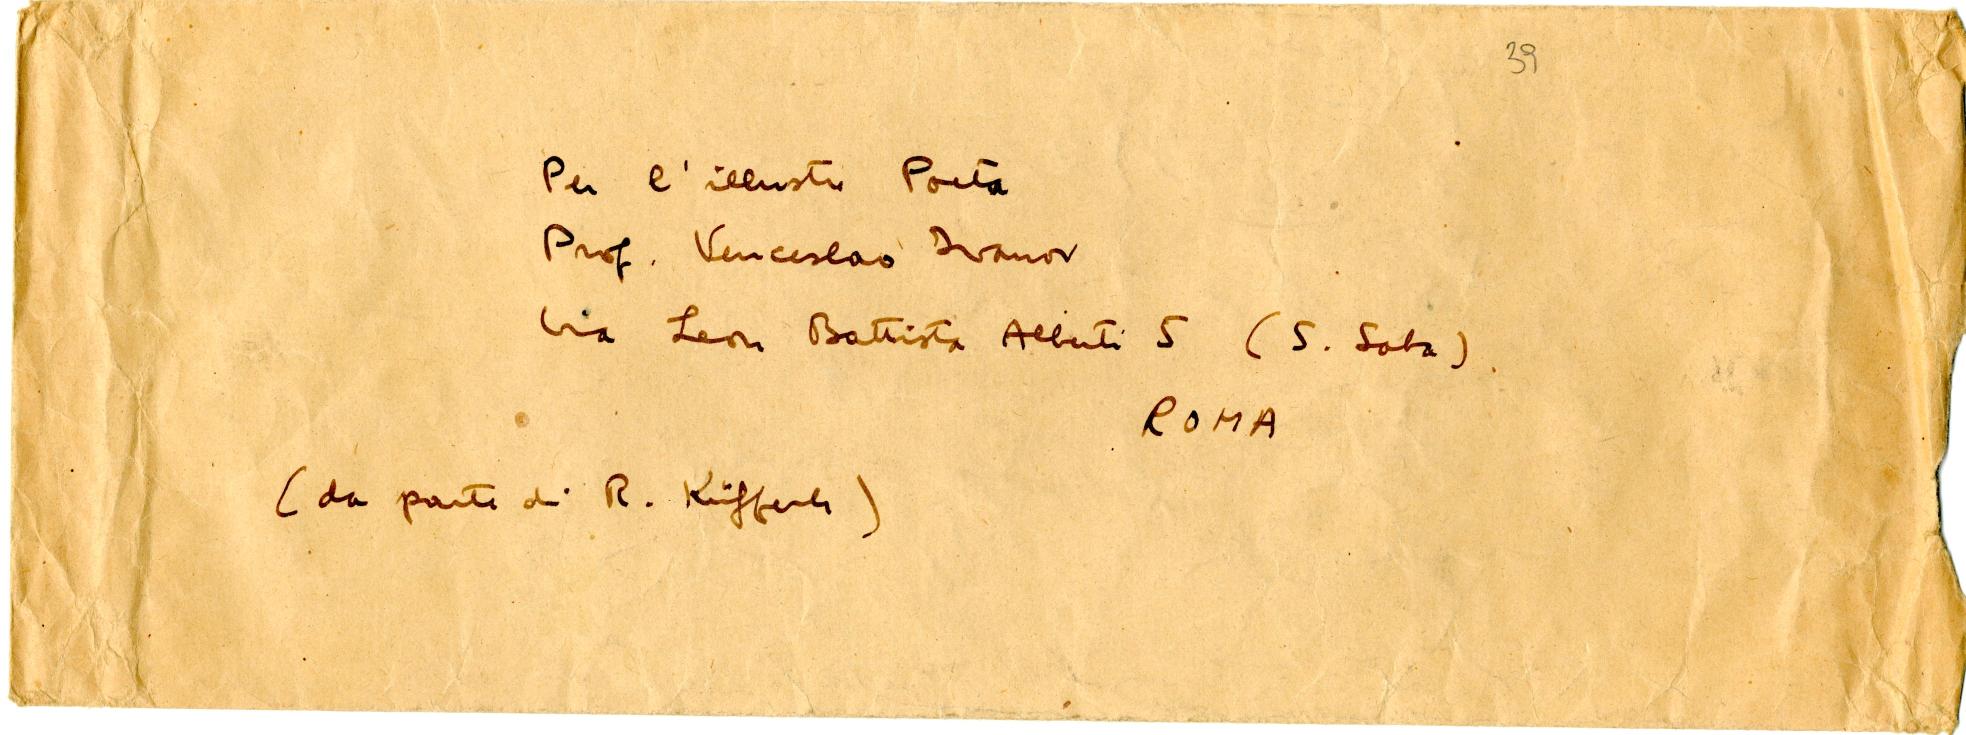 39
Per l'illustre Poeta
Prof. Venceslao Ivanov
Via Leon Battista Alberti 5 (S. Saba)
ROMA
(da parte di R. Küfferle)